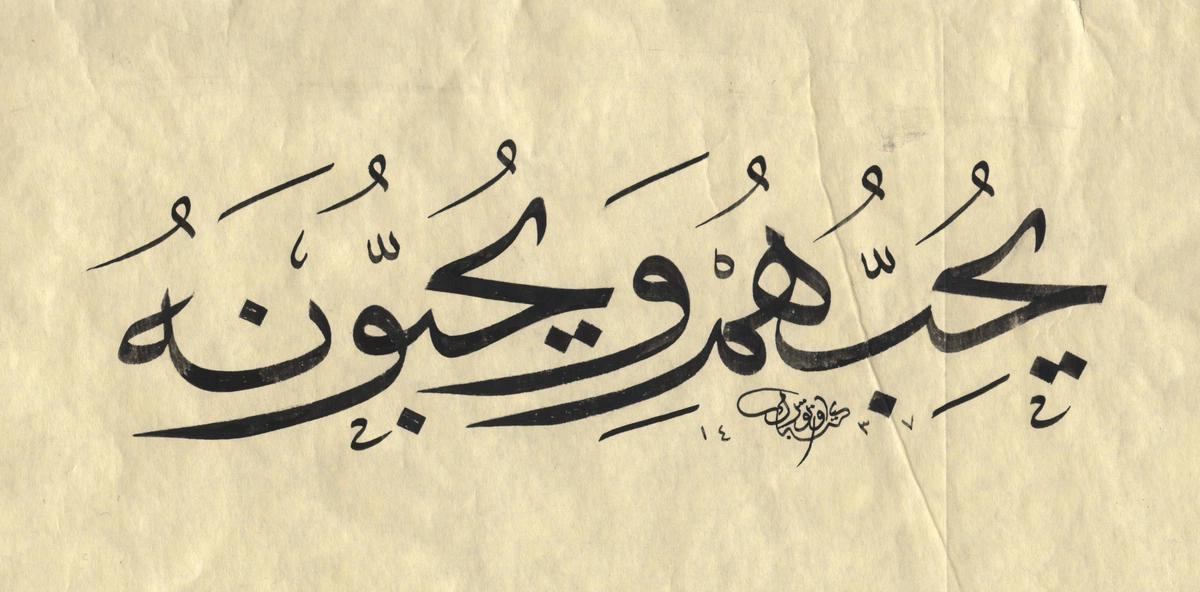 يُحِبُّهُمْ وَيُحِبُّونَهُ
١٤ ٣٧